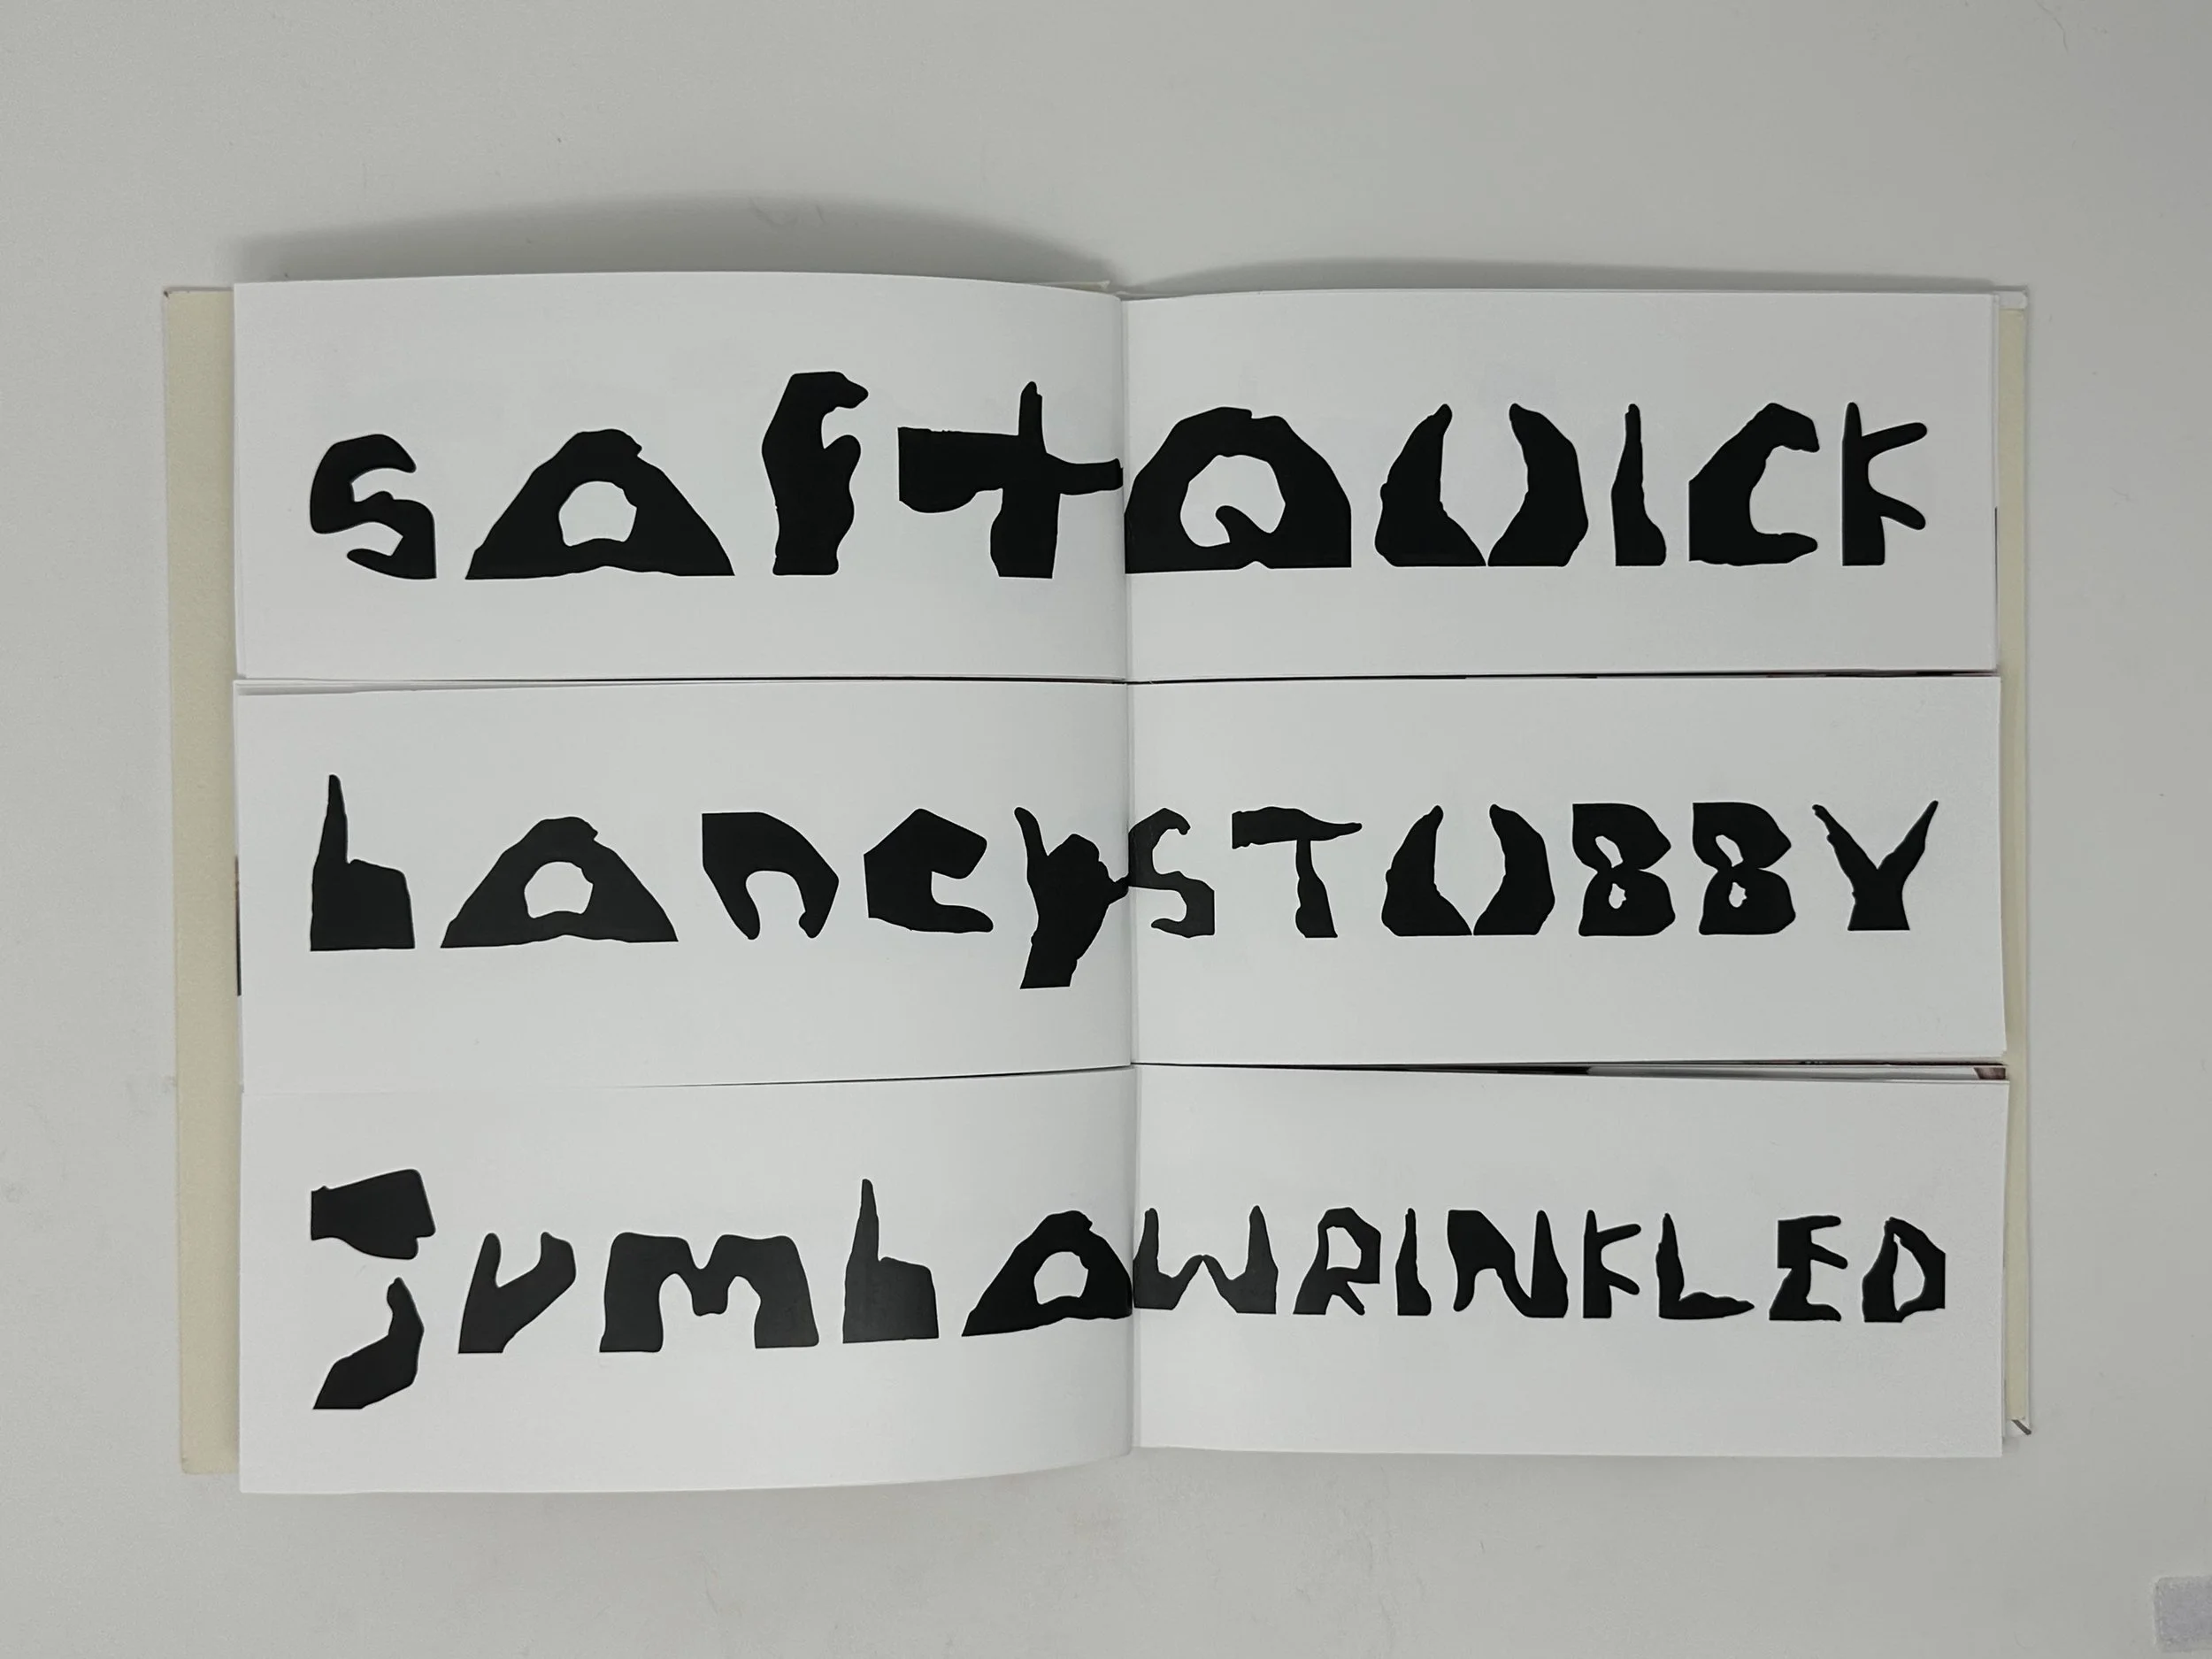 soft QUICK
boney STUBBY
jumbo WRINKLED